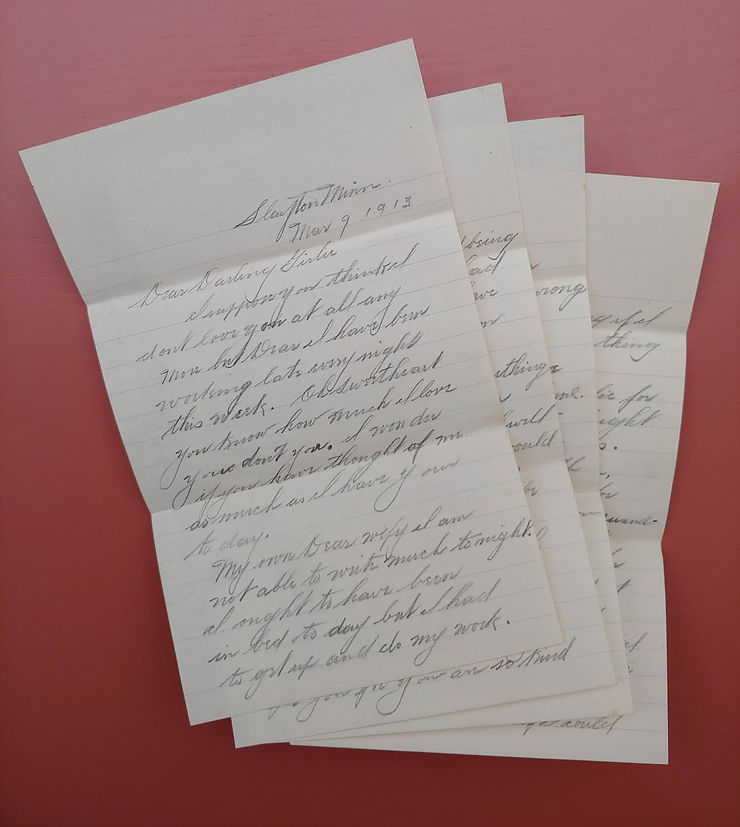 Slayton Minn.
Mar 9 1913
Dear Darling Girlie
I suppose you think I
dont love you at all any
more but Dear I have been
working late every night
this week. Oh Sweetheart
you know how much I love
you dont you. I wonder
if you have thought of me
as much as I have of you
to day.
My own Dear wify I am
not able to write much to night.
I ought to have been
in bed to day but I had
to get up and do my work.
you are so kind
being
had
have wrong
things
will
would
be
me.
if I
thing
for
night
could